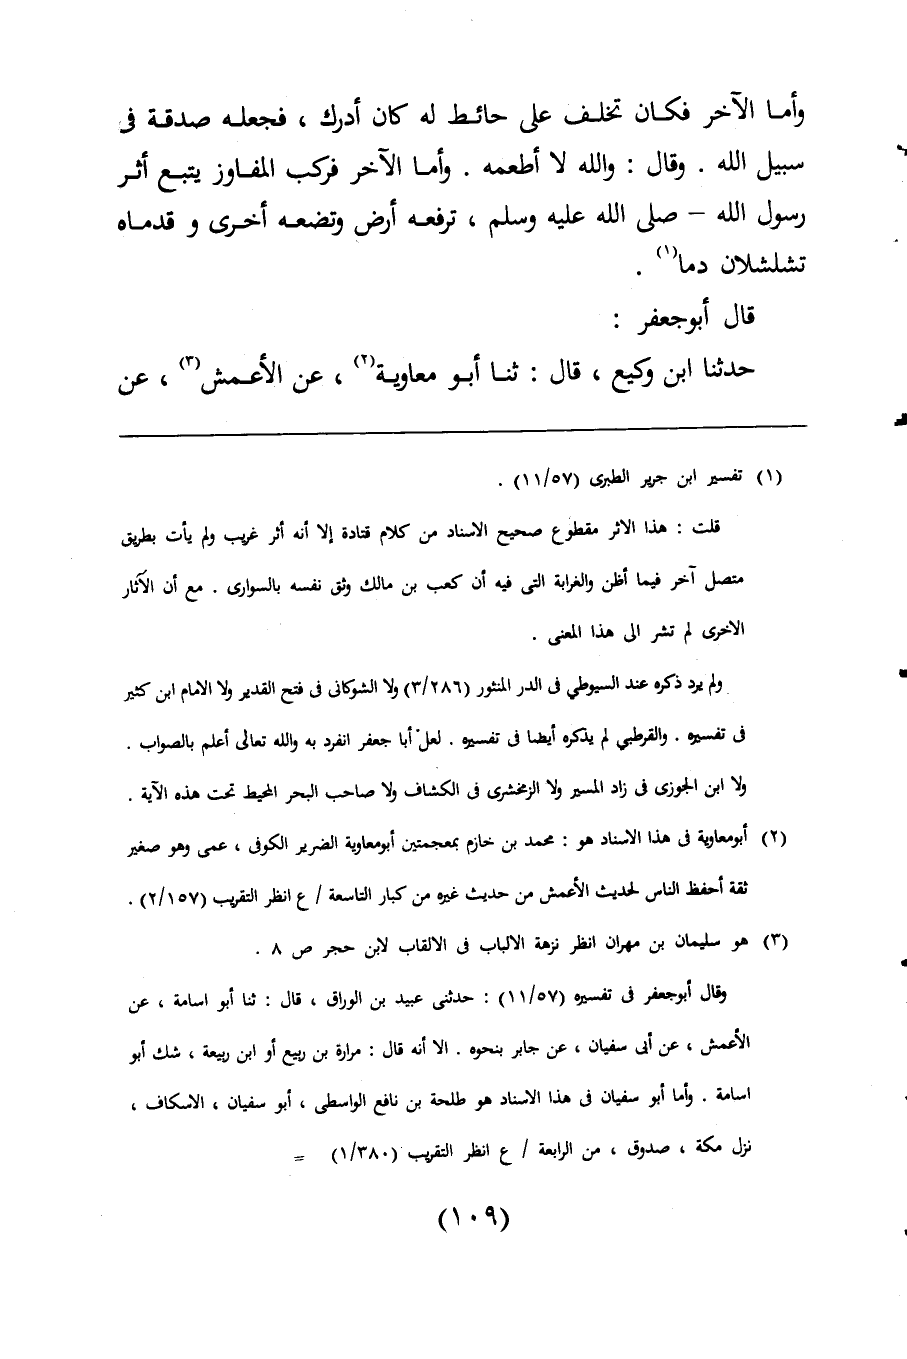 وأما الآخر فكان تخلف على حائط له كان أدرك ، فجعله صدقة فى
سبيل الله . وقال : والله لا أطعمه . وأما الآخر فركب المفاوز يتبع أثر
رسول الله – صلى الله عليه وسلم ، ترفعه أرض وتضعه أخرى و قدماه
تشلشلان دما(١) .
قال أبوجعفر :
حدثنا ابن وكيع ، قال : ثنا أبو معاوية(٢) ، عن الأعمش(٣) ، عن
(١) تفسير ابن جرير الطبرى (١١/٥٧) .
قلت : هذا الاثر مقطوع صحيح الاسناد من كلام قتادة إلا أنه أثر غريب ولم يأت بطريق
متصل آخر فيما أظن والغرابة التى فيه أن كعب بن مالك وثق نفسه بالسوارى . مع أن الآثار
الاخرى لم تشر الى هذا المعنى .
ولم يرد ذكره عند السيوطي فى الدر المنثور (٣/٢٨٦) ولا الشوكانى فى فتح القدير ولا الامام ابن كثير
فى تفسيره . والقرطبي لم يذكره أيضا فى تفسيره . لعل أبا جعفر انفرد به والله تعالى أعلم بالصواب .
ولا ابن الجوزى فى زاد المسير ولا الزمخشرى فى الكشاف ولا صاحب البحر المحيط تحت هذه الآية .
(٢) أبومعاوية فى هذا الاسناد هو : محمد بن خازم بمعجمتين أبومعاوية الضرير الكوفى ، عمى وهو صغير
ثقة أحفظ الناس لحديث الأعمش من حديث غيره من كبار التاسعة / ع انظر التقريب (٢/١٥٧) .
(٣) هو سليمان بن مهران انظر نزهة الالباب فى الالقاب لابن حجر ص ٨ .
وقال أبوجعفر فى تفسيره (١١/٥٧) : حدثنى عبيد بن الوراق ، قال : ثنا أبو اسامة ، عن
الأعمش ، عن أبى سفيان ، عن جابر بنحوه . الا أنه قال : مرارة بن ربيع أو ابن ربيعة ، شك أبو
اسامة . وأما أبو سفيان فى هذا الاسناد هو طلحة بن نافع الواسطى ، أبو سفيان ، الاسكاف ،
نزل مكة ، صدوق ، من الرابعة / ع انظر التقريب (١/٣٨٠) =
(١٠٩)